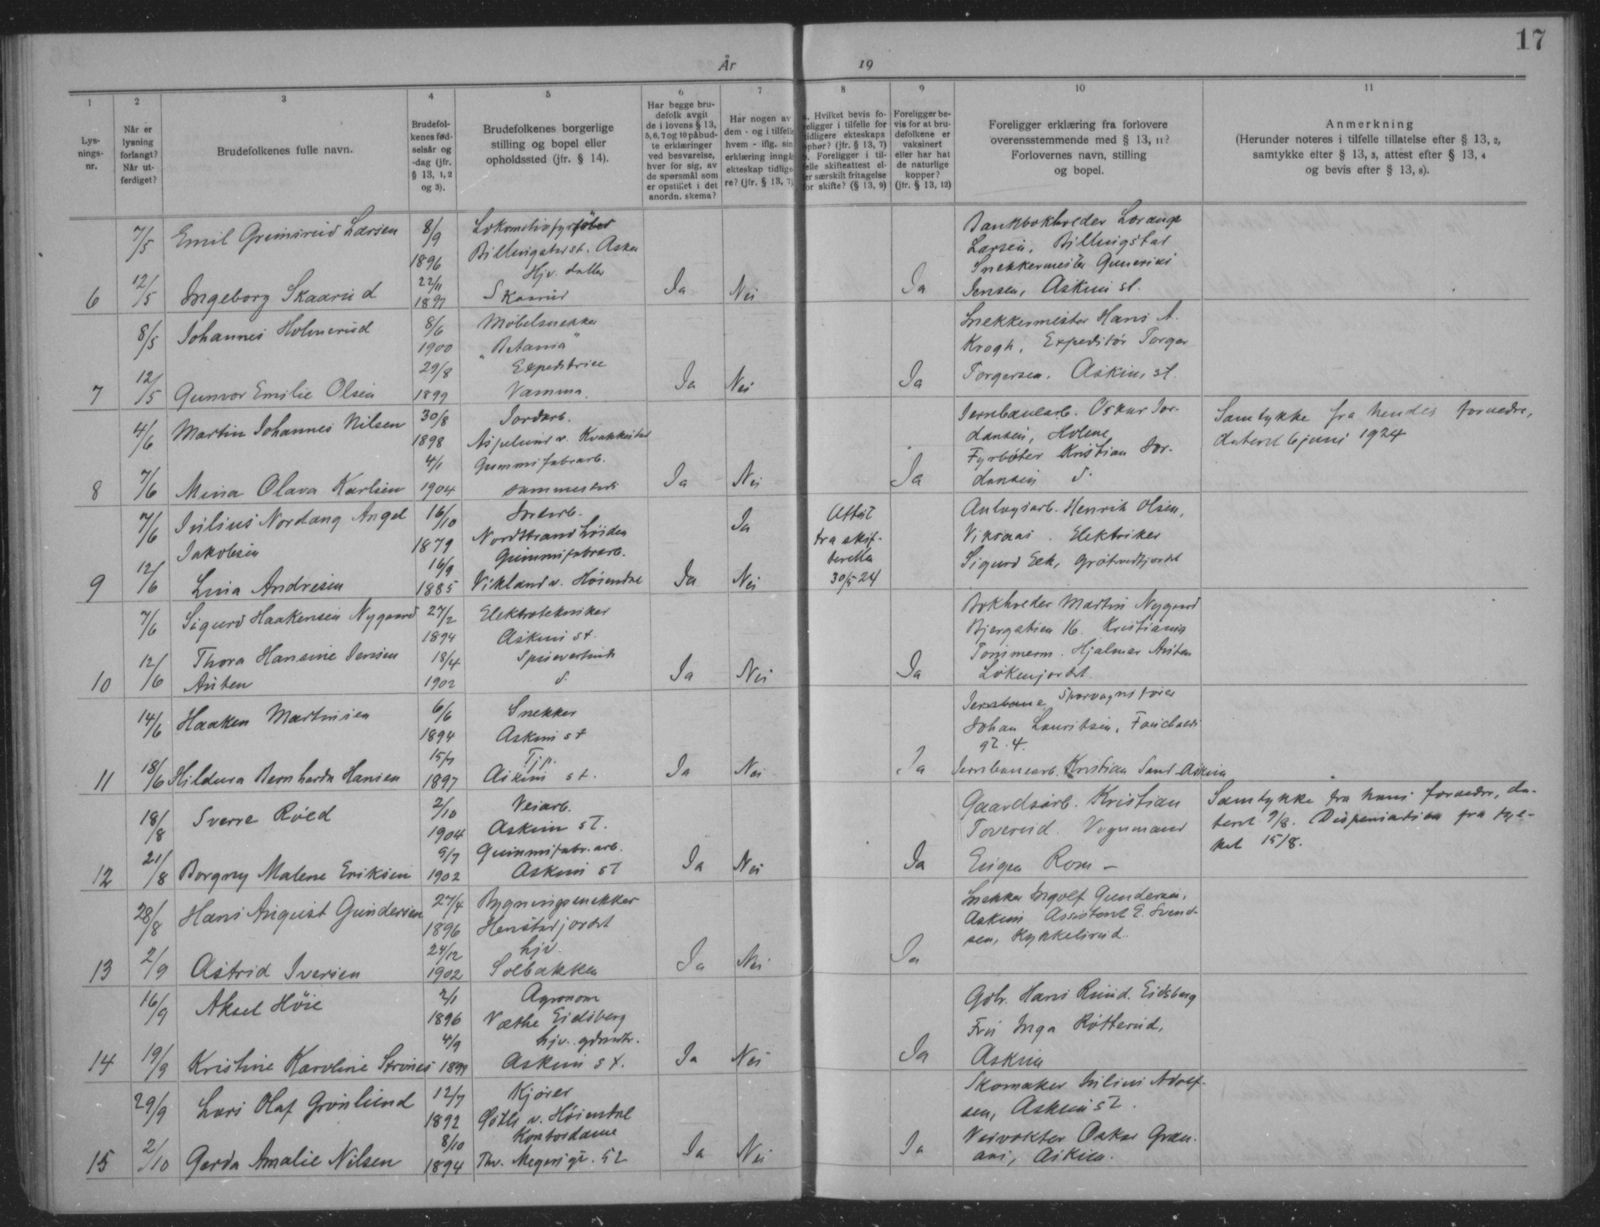 17
År 19
1 2 3 4 5 6 7 8 9 10 11
Lys-
nings-
nr.
Når er
lysning
forlangt?
Når ut-
ferdiget?
Brudefolkenes fulle navn.
Brudefol-
kenes fød-
selsår og
-dag (jfr.
§ 13, 1, 2
og 3).
Brudefolkenes borgerlige
stilling og bopel eller
opholdssted (jfr. § 14).
Har begge bru-
defolk avgit
de i lovens § 13,
5, 6, 7 og 10 påbud-
te erklæringer
ved besvarelse,
hver for sig, av
de spørsmål som
er opstillet i det
anordn. skema?
Har nogen av
dem - og i tilfelle
hvem - iflg. sin
erklæring inngå
ekteskap tidlige
re? (jfr. § 13, 7)
Hvilket bevis fo-
religger i tilfelle for
tidligere ekteskaps
ophør? (jfr. § 13, 7)
Foreligger i til-
felle skifteattest el-
er særskilt fritagelse
for skifte? (§ 13, 9)
Foreligger be-
vis for at bru-
defolkene er
vaksinert
eller har hat
de naturlige
kopper?
(jfr. § 13, 12)
Foreligger erklæring fra forlovere
overensstemmende med § 13, 11?
Forlovernes navn, stilling
og bopel.
Anmerkning
(Herunder noteres i tilfelle tillatelse efter § 13, 2,
samtykke efter § 13, 3, attest efter § 13, 4
og bevis efter § 13, 8).
7/5 Emil Grimsrud Larsen 8/9 1896 Lokomotivfyrbøter
Billingstad st. Asker
6 12/5 Ingeborg Skaarud 22/11 1897 Hjv. datter
Skaarud Ja Nei Ja
Bankbokholder Lorang
Larsen, Billingstad
Snekkermester Gunerius
Jensen, Askim st.
8/5 Johannes Holmerud 8/6 1900 Møbelsnekker
"Betania"
7 12/5 Gunvor Emilie Olsen 29/8 1899 Expeditrice
Vamma. Ja Nei Ja
Snekkermester Hans A.
Krogh, Expeditør Torger
Torgersen. Askim, st.
4/6 Martin Johannes Nilsen 30/8 1898 Jordarb.
Aspelund v.
8 7/6 Mina Olava Karlsen 4/1 1904 Gummifabrarb.
sammesteds Ja Nei Ja
Jernbanearb. Oskar Jor-
dansen, Holene
Fyrbøter Kristian Jor-
dansen
Samtykke fra hendes foraedre,
dateret 6 juni 1924
7/6 Julius Nordang Angel
Jakobsen 16/10 1879
Nordstrand Ja
9 12/6 Lina Andresen 16/9 1885 Gummifabrarb.
Vikland v. Høiendal Ja Nei
Attest
fra skif-
teretten
30/5-24
Anlægsarb. Henrik Olsen,
Elektriker
Sigurd Eek,
7/6 Sigurd Haakensen Nygaard 27/2 1894 Elektrotekniker
Askim st
10 12/6 Thora Hansine Jensen
Auten 18/4 1902 Ja Nei Ja
Bokholder Martin Nygaard
Bjergstien 16. Kristiania
Tømmerm. Hjalmar Auten
Løkenjordet.
14/6 Haaken Martinsen 6/6 1894 Snekker
Askim st
11 18/6 Hildura Bernharda Hansen 15/7 1897 Tjp.
Askim st. Ja Nei Ja
Jernbane Sporvognsfører
Johan Lauritsen,
gt. 4.
Jernbanearb. Kristian Sand Askim
18/8 Sverre Röed 2/10 1904 Veiarb.
Askim st.
12 21/8 Borgny Malene Eriksen 9/7 1902 Gummifabr.arb.
Askim st Ja Nei Ja
Gaardsarb. Kristian
Toverud. Vognmand
Eugen Rosn –
Samtykke fra hans foraedre, da-
teret 7/8. Dispensation fra fyl-
ket 15/8.
28/8 Hans August Gundersen 27/4 1896 Bygningssnekker
Henstadjordet
13 2/9 Astrid Iversen 24/12 1902 hjv.
Solbakken Ja Nei Ja
Snekker Ingolf Gundersen,
Askim Assistent E. Svend-
sen, Kykkelsrud.
16/9 Aksel Höie 2/1 1896 Agronom
Væthe Eidsberg
14 19/9 Kristine Karoline 4/9 hjv.
Askim st. Ja Nei Ja
Gbr. Hans Ruud. Eidsberg
Frü Inga Røtterud,
Askim
29/9 Lars Olaf Grönlund 12/7 1892 Kjörer
v. Höiendal
15 2/10 Gerda Amalie Nilsen 8/10 1894 Kontordame
Thv. Meyers gt. 52 Ja Nei Ja
Skomaker Julius Adolf-
sen, Askim st.
Veivokter Oskar Gran-
aas, Askim.